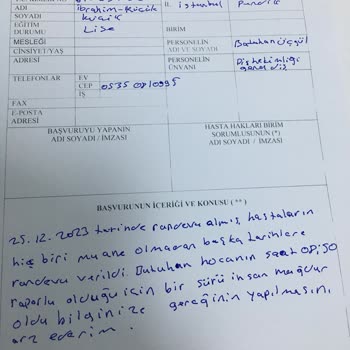 ADI İbrahim-Küçük İL İstanbul Pendik
SOYADI Küçük
EĞİTİM
DURUMU Lise BİRİM
MESLEĞİ PERSONELİN
ADI VE SOYADI Batuhan
CİNSİYET/YAŞ
ADRESİ PERSONELİN
ÜNVANI Diş hekimliği
TELEFONLAR EV
CEP 0535
İŞ
FAX
E-POSTA
ADRESİ
BAŞVURUYU YAPANIN
ADI SOYADI / İMZASI
HASTA HAKLARI BİRİM
SORUMLUSUNUN (*)
ADI SOYADI / İMZASI
BAŞVURUNUN İÇERİĞİ VE KONUSU ( ** )
25.12.2023 tarinde randevu almış hastaların
hiç biri muane olmadan başka tarihlere
randevu verildi. Batuhan hocanın saat 08:50
raporlu olduğu için bir sürü insan mağdur
oldu bilginize gereğinin yapılmasını
arz ederim.